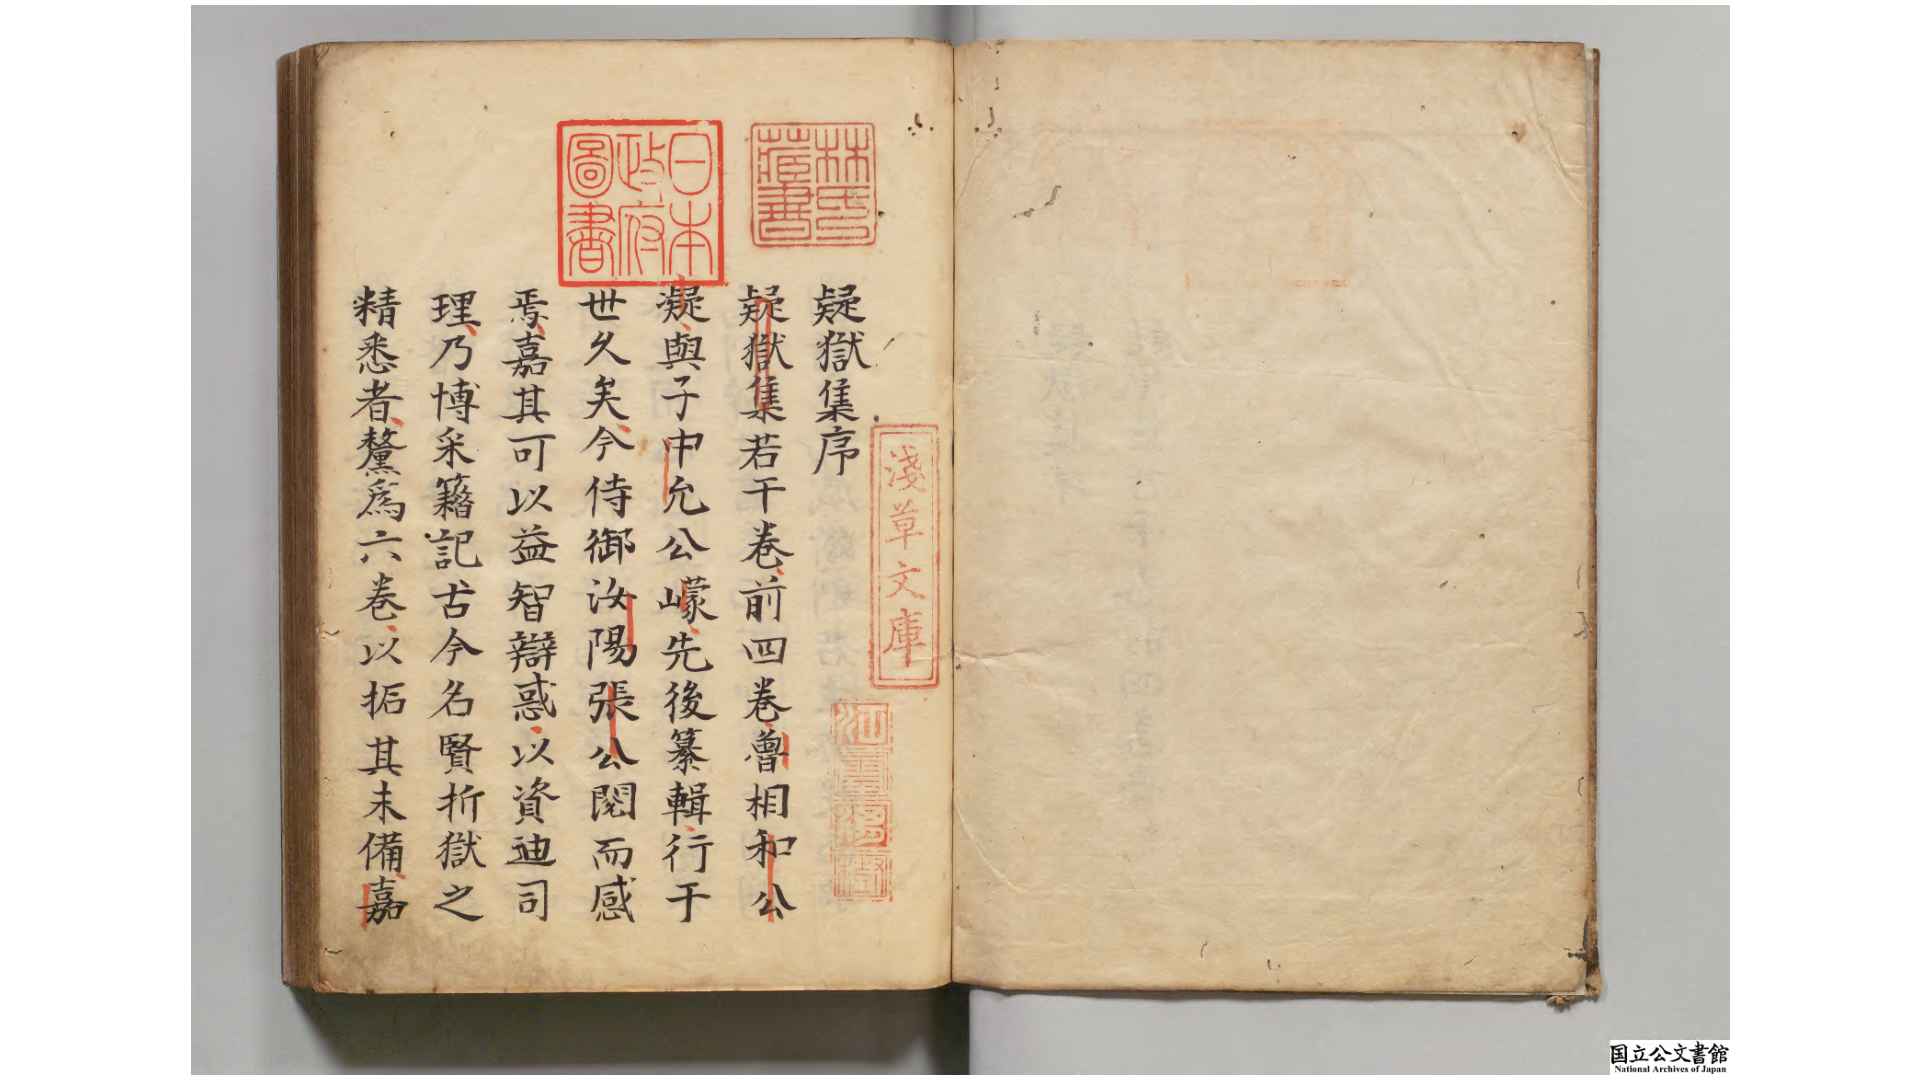 疑獄集序
疑獄集若干卷前四卷魯相和公
凝與子中允公㠓先後纂輯行于
世久矣今侍御汝陽張公閱而感
焉嘉其可以益智辯惑以資迪司
理乃博采籍記古今名賢折獄之
精悉者釐為六卷以拓其未備嘉
林氏藏書
日本政府圖書
淺草文庫
国立公文書館
National Archives of Japan